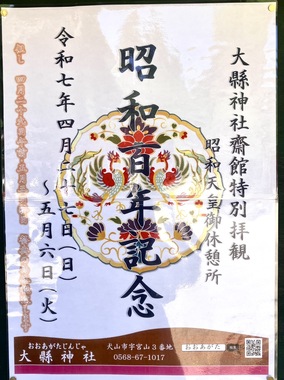 大縣神社齋館特別拝観
昭和天皇御休憩所
昭和百年記念
令和七年四月二十七日(日)
~五月六日(火)
おおあがたじんじゃ
大縣神社
犬山市字宮山3番地
0568-67-1017
おおあがた
検索